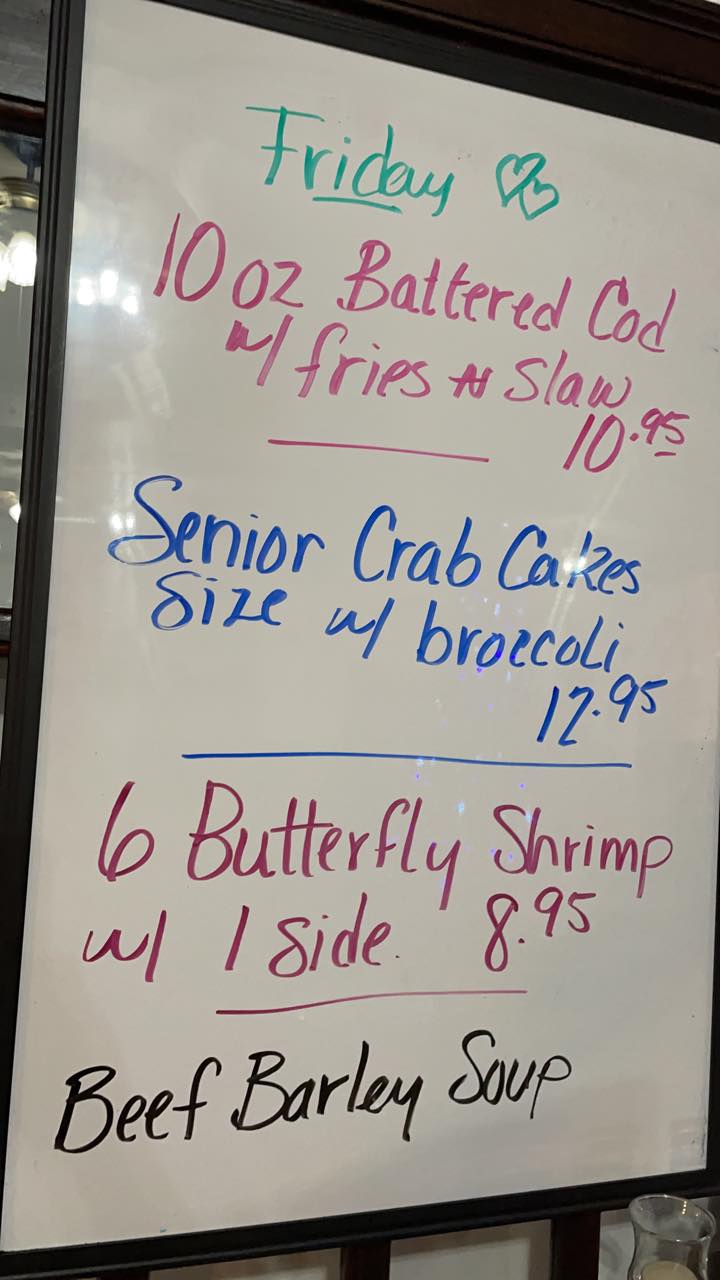 Friday
10 oz Battered Cod
w/ fries N Slaw
10.95
Senior Crab Cakes
Size w/ broccoli
12.95
6 Butterfly Shrimp
w/ 1 Side. 8.95
Beef Barley Soup